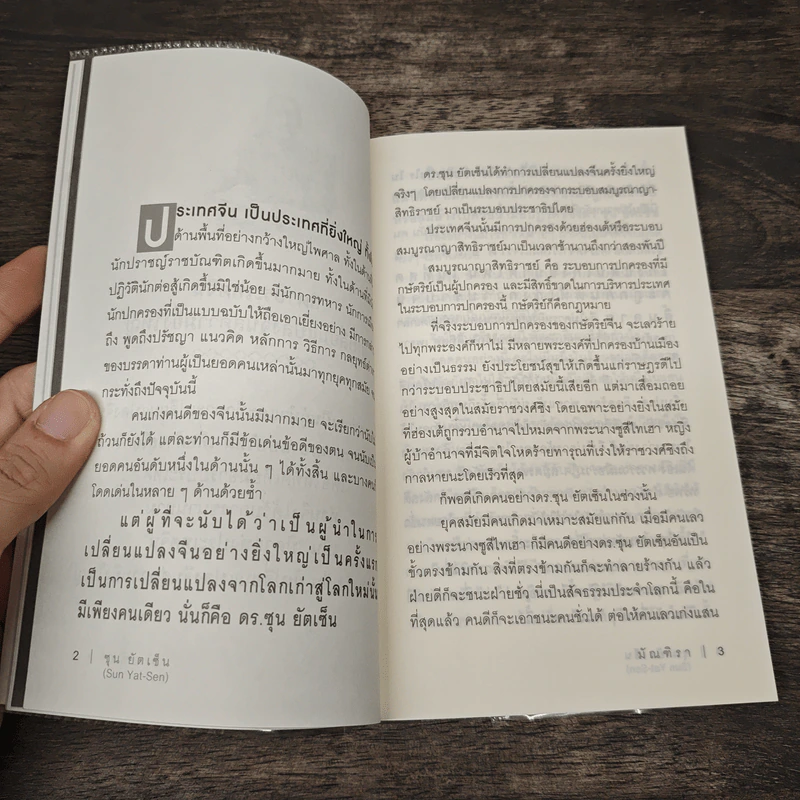 ประเทศจีน เป็นประเทศที่ยิ่งใหญ่
ด้านพื้นที่อย่างกว้างใหญ่ไพศาล ทั้งในด้านที่
นักปราชญ์ราชบัณฑิตเกิดขึ้นมากมาย ทั้งในด้านที่มี
ปฏิวัตินักต่อสู้เกิดขึ้นมิใช่น้อย มีนักการทหาร นักการเมือง
นักปกครองที่เป็นแบบฉบับให้ถือเอาเยี่ยงอย่าง มีการ
ถึง พูดถึงปรัชญา แนวคิด หลักการ วิธีการ กลยุทธ์ต่าง
ของบรรดาท่านผู้เป็นยอดคนเหล่านั้นมาทุกยุคทุกสมัย
กระทั่งถึงปัจจุบันนี้
คนเก่งคนดีของจีนนั้นมีมากมาย จะเรียกว่านับไม่
ถ้วนก็ยังได้ แต่ละท่านก็มีข้อเด่นข้อดีของตน จนนับเป็น
ยอดคนอันดับหนึ่งในด้านนั้น ๆ ได้ทั้งสิ้น และบางคน
โดดเด่นในหลาย ๆ ด้านด้วยซ้ำ
แต่ผู้ที่จะนับได้ว่าเป็นผู้นำในการ
เปลี่ยนแปลงจีนอย่างยิ่งใหญ่เป็นครั้งแรก
เป็นการเปลี่ยนแปลงจากโลกเก่าสู่โลกใหม่นั้น
มีเพียงคนเดียว นั่นก็คือ ดร.ซุน ยัตเซ็น
2 | ซุน ยัตเซ็น
(Sun Yat-Sen)
ดร.ซุน ยัตเซ็นได้ทำการเปลี่ยนแปลงจีนครั้งยิ่งใหญ่
จริงๆ โดยเปลี่ยนแปลงการปกครองจากระบอบสมบูรณาญา-
สิทธิราชย์ มาเป็นระบอบประชาธิปไตย
ประเทศจีนนั้นมีการปกครองด้วยฮ่องเต้หรือระบอบ
สมบูรณาญาสิทธิราชย์มาเป็นเวลาช้านานถึงกว่าสองพันปี
สมบูรณาญาสิทธิราชย์ คือ ระบอบการปกครองที่มี
กษัตริย์เป็นผู้ปกครอง และมีสิทธิ์ขาดในการบริหารประเทศ
ในระบอบการปกครองนี้ กษัตริย์ก็คือกฎหมาย
ที่จริงระบอบการปกครองของกษัตริย์จีน จะเลวร้าย
ไปทุกพระองค์ก็หาไม่ มีหลายพระองค์ที่ปกครองบ้านเมือง
อย่างเป็นธรรม ยังประโยชน์สุขให้เกิดขึ้นแก่ราษฎรดีไป
กว่าระบอบประชาธิปไตยสมัยนี้เสียอีก แต่มาเสื่อมถอย
อย่างสูงสุดในสมัยราชวงศ์ชิง โดยเฉพาะอย่างยิ่งในสมัย
ที่ฮ่องเต้ถูกรวบอำนาจไปหมดจากพระนางซูสีไทเฮา หญิง
ผู้บ้าอำนาจที่มีจิตใจโหดร้ายทารุณที่เร่งให้ราชวงศ์ชิงถึง
กาลหายนะโดยเร็วที่สุด
ก็พอดีเกิดคนอย่างดร.ซุน ยัตเซ็นในช่วงนั้น
ยุคสมัยมีคนเกิดมาเหมาะสมัยแก่กัน เมื่อมีคนเลว
อย่างพระนางซูสีไทเฮา ก็มีคนดีอย่างดร.ซุน ยัตเซ็นอันเป็น
ขั้วตรงข้ามกัน สิ่งที่ตรงข้ามกันก็จะทำลายร้างกัน แล้ว
ฝ่ายดีก็จะชนะฝ่ายชั่ว นี่เป็นสัจธรรมประจำโลกนี้ คือใน
ที่สุดแล้ว คนดีก็จะเอาชนะคนชั่วได้ ต่อให้คนเลวเก่งแสน
มัณฑิรา | 3